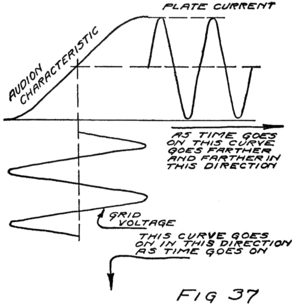 PLATE CURRENT
AUDION
CHARACTERISTIC
AS TIME GOES
ON THIS CURVE
GOES FARTHER
AND FARTHER IN
THIS DIRECTION
GRID
VOLTAGE
THIS CURVE GOES
ON IN THIS DIRECTION
AS TIME GOES ON
FIG 37